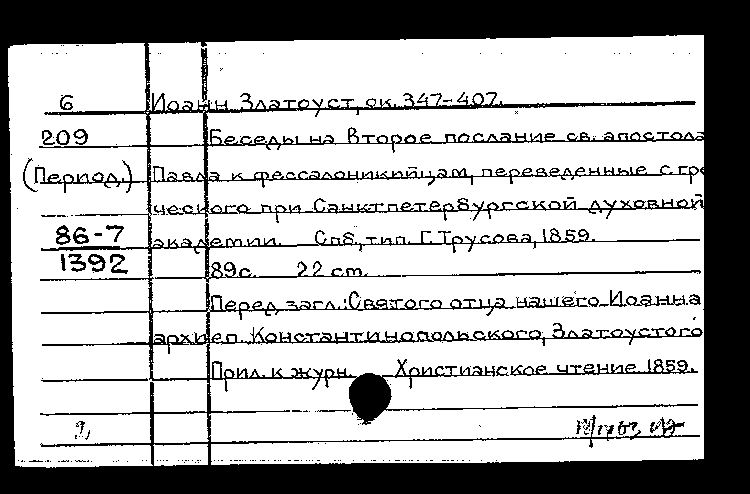 6 Иоанн Златоуст, ок. 347-407.
209 Беседы на второе послание св. апостола
(Период.) Павла к фессалоникийцам, переведенные с гре
ческого при Санктпетербургской духовной
86-7 академии. Спб, тип. Г. Трусова, 1859.
1392 89с. 22 cm.
Перед загл.: Святого отца нашего Иоанна
архиеп. Константинопольского, Златоустого
Прил. к журн. Христианское чтение 1859.